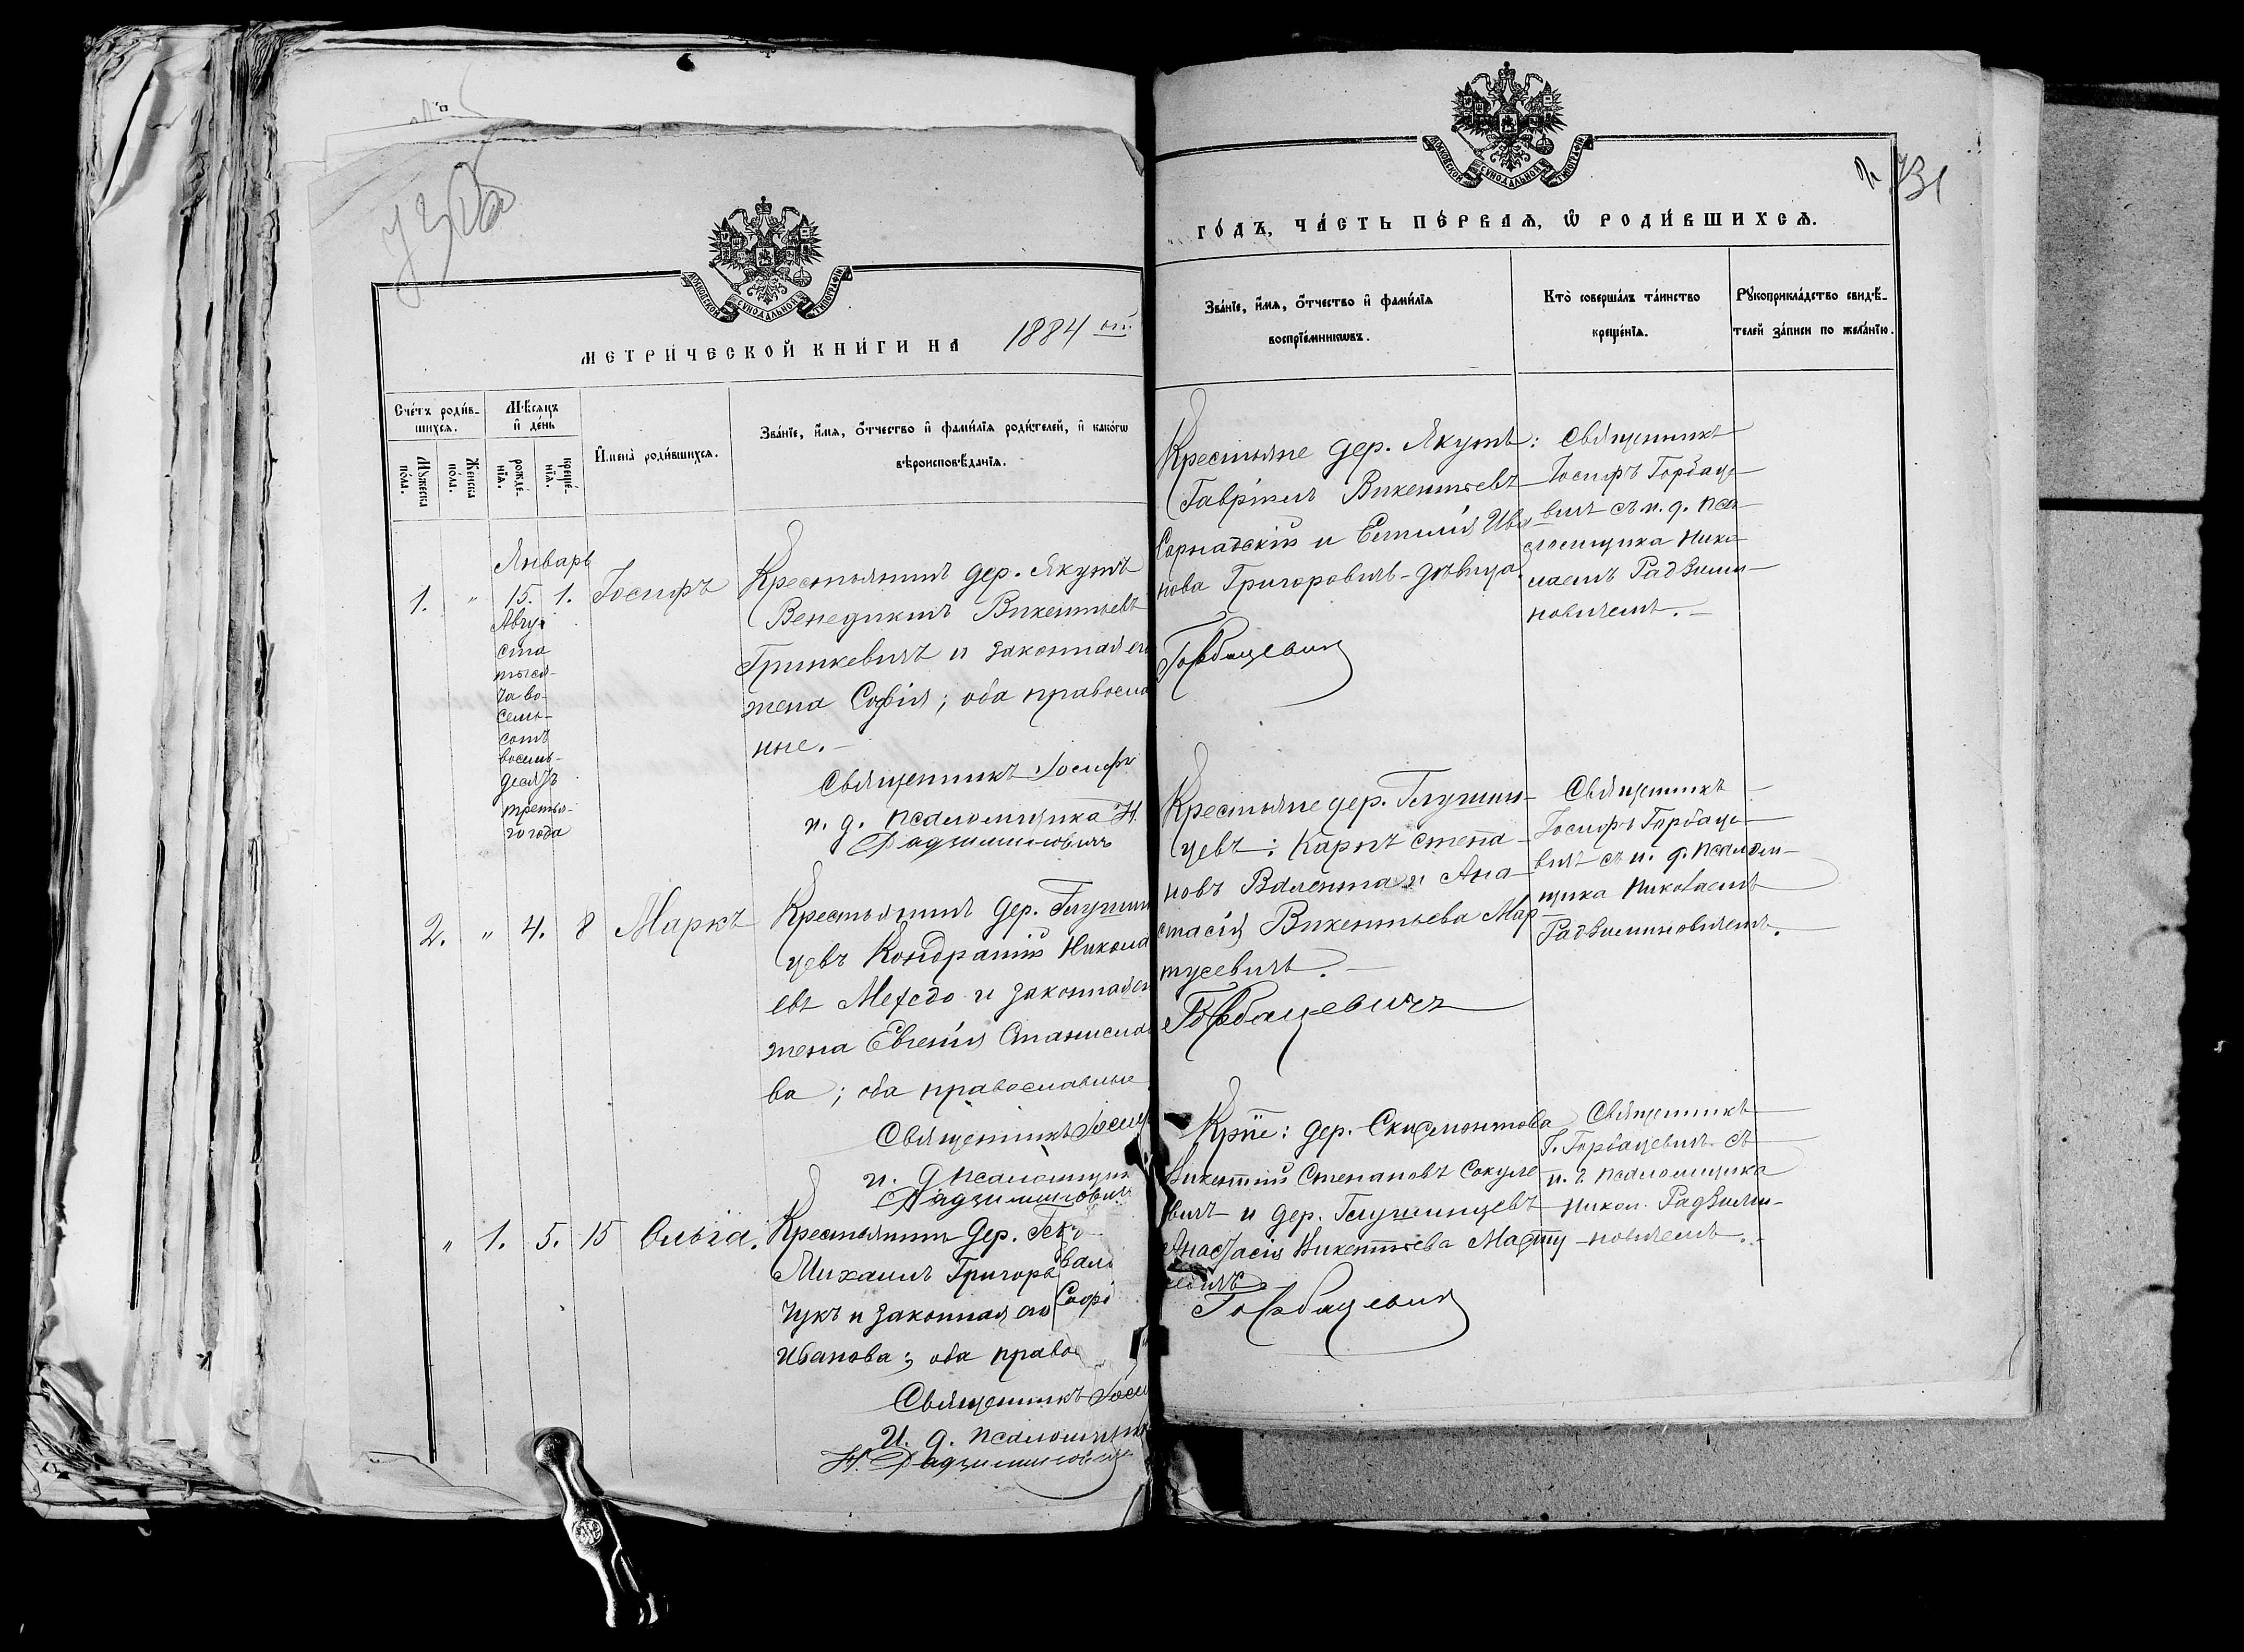 730
МОСКОВСКОЙ СѴНОДАЛЬНОЙ ТИПОГРАФІИ
МЕТРИ́ЧЕСКОЙ КНИ́ГИ НА 1884 ый
Сче́тъ роди́в-
шихсѧ.
Мѣ́сѧцъ
и҆ де́нь
Мꙋ́жеска
по́ла.
Же́нска
по́ла.
рожде́-
нїѧ.
креще́-
нїѧ.
И҆мена̀ роди́вшихсѧ.
Зва́нїе, и҆́мѧ, ѻ҆́тчество и҆ фами́лїѧ роди́телей, и҆ како́гѡ
вѣроисповѣ́данїѧ.
Январь
1. " 15. 1. Іосифъ
Авгу-
ста
тыся-
ча во-
семь-
сотъ
восемь-
десятъ
третья-
го года
Крестьянинъ дер. Якутъ
Венедиктъ Викентьевъ
Гринкевичъ и законная его
жена Софія; оба правосла
ные.-
Священникъ Іосифъ
и. д. псаломщика Н.
Радзиминовичъ
2. " 4. 8 Маркъ
Крестьянинъ дер. Глушин
цевъ Кондратій Никола
евъ и законная ег
жена Евгенія Станисла
ва; оба православные
Священникъ Іосиф
и. д. псаломщик
Радзиминовичъ
" 1. 5. 15 Ольга.
Крестьянинъ дер.
Михаилъ Григорь
чукъ и законная его Софі
Иванова; оба правос
Священникъ Іоси
И. д. псаломщик
Н. Радзиминович
731
МОСКОВСКОЙ СѴНОДАЛЬНОЙ ТИПОГРАФІИ
ГО́ДЪ, ЧА́СТЬ ПЕ́РВАѦ, Ѡ҆ РОДИ́ВШИХСѦ.
Зва́нїе, и҆́мѧ, ѻ҆́тчество и҆ фами́лїѧ
воспрїе́мникѡвъ.
Кто̀ соверша́лъ та́инство
креще́нїѧ.
Рꙋкоприкла́дство свидѣ́-
телей за́писи по жела́нїю.
Крестьяне дер. Якутъ:
Гавріилъ Викентьевъ
и Емилія Ива
нова Григоровичъ-дѣвица.
Горбацевич
Священникъ
Іосифъ Горбаце-
вичъ съ и. д. пса-
ломщика Нико-
лаемъ Радзими-
новичемъ.-
Крестьяне дер. Глушин-
цевъ: Карпъ Степа-
новъ Валента и Ана-
стасія Викентьева Мар-
тусевичъ.-
Горбацевичъ
Священникъ
Іосифъ Горбаце-
вичъ съ и. д. псалом-
щика Николаемъ
Радзиминовичемъ.
Крпе: дер. Скирмонтова
Викентій Степановъ Сокуле
вичъ и дер. Глушинцевъ
Анастасія Викентьева Марту
севичъ
Горбацевич
Священникъ
І. Горбацевичъ съ
и. д. псаломщика
Никол. Радзими-
новичемъ.-